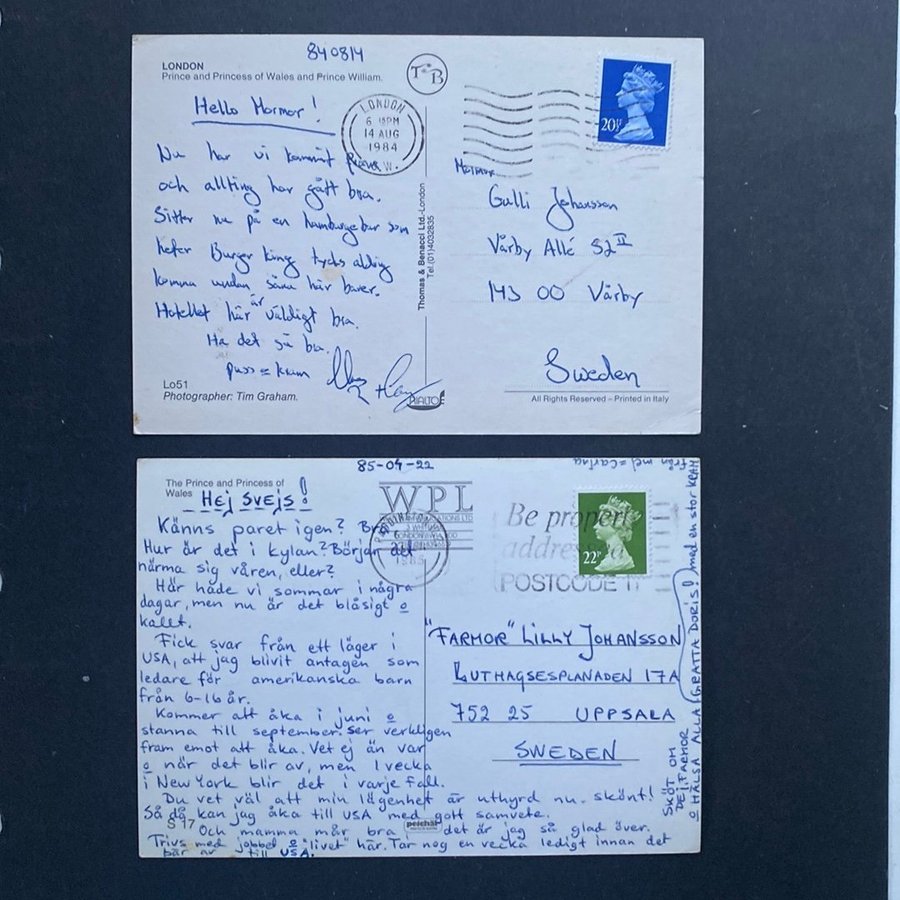 840814
LONDON
Prince and Princess of Wales and Prince William.
T B
Hello Mormor!
LONDON
6 15PM
14 AUG
1984
W.
20½P
Nu har vi kommit fram
och allting har gått bra.
Sitter nu på en hamburgebar som
heter Burger King tycks aldrig
komma undan såna här barer.
Hotellet här är väldigt bra.
Ha det så bra.
puss o kram
Lo51
Photographer: Tim Graham.
Thomas & Benacci Ltd.-London
Tel.(01)4032835
RIALTO
Mormor
Gulli Johansson
Vårby Allé 52 II
143 00 Vårby
Sweden
All Rights Reserved – Printed in Italy
85-04-22
från mej = Carina
The Prince and Princess of
Wales
Hej Svejs!
WPL
PADDINGTON
1985
Be properly
addressed
POSTCODE IT
22P
Känns paret igen? Bra
Hur är det i kylan? Börjar det
närma sig våren, eller?
Här hade vi sommar i några
dagar, men nu är det blåsigt o
kallt.
Fick svar från ett läger i
USA, att jag blivit antagen som
ledare för amerikanska barn
från 6-16 år.
Kommer att åka i juni o
stanna till september. Ser verkligen
fram emot att åka. Vet ej än var
o när det blir av, men 1 vecka
i New York blir det i varje fall.
Du vet väl att min lägenhet är uthyrd nu. Skönt!
Så då kan jag åka till USA med gott samvete.
S 17
peichäl
Och mamma mår bra! det är jag så glad över.
Trivs med jobbet o "livet" här. Tar nog en vecka ledigt innan det
bär av till USA.
"FARMOR" LILLY JOHANSSON
LUTHAGSESPLANADEN 17A
752 25 UPPSALA
SWEDEN
SKÖT OM
DEJ, FARMOR
o HÄLSA ALLA (GRATTA DORIS! med en stor KRAM